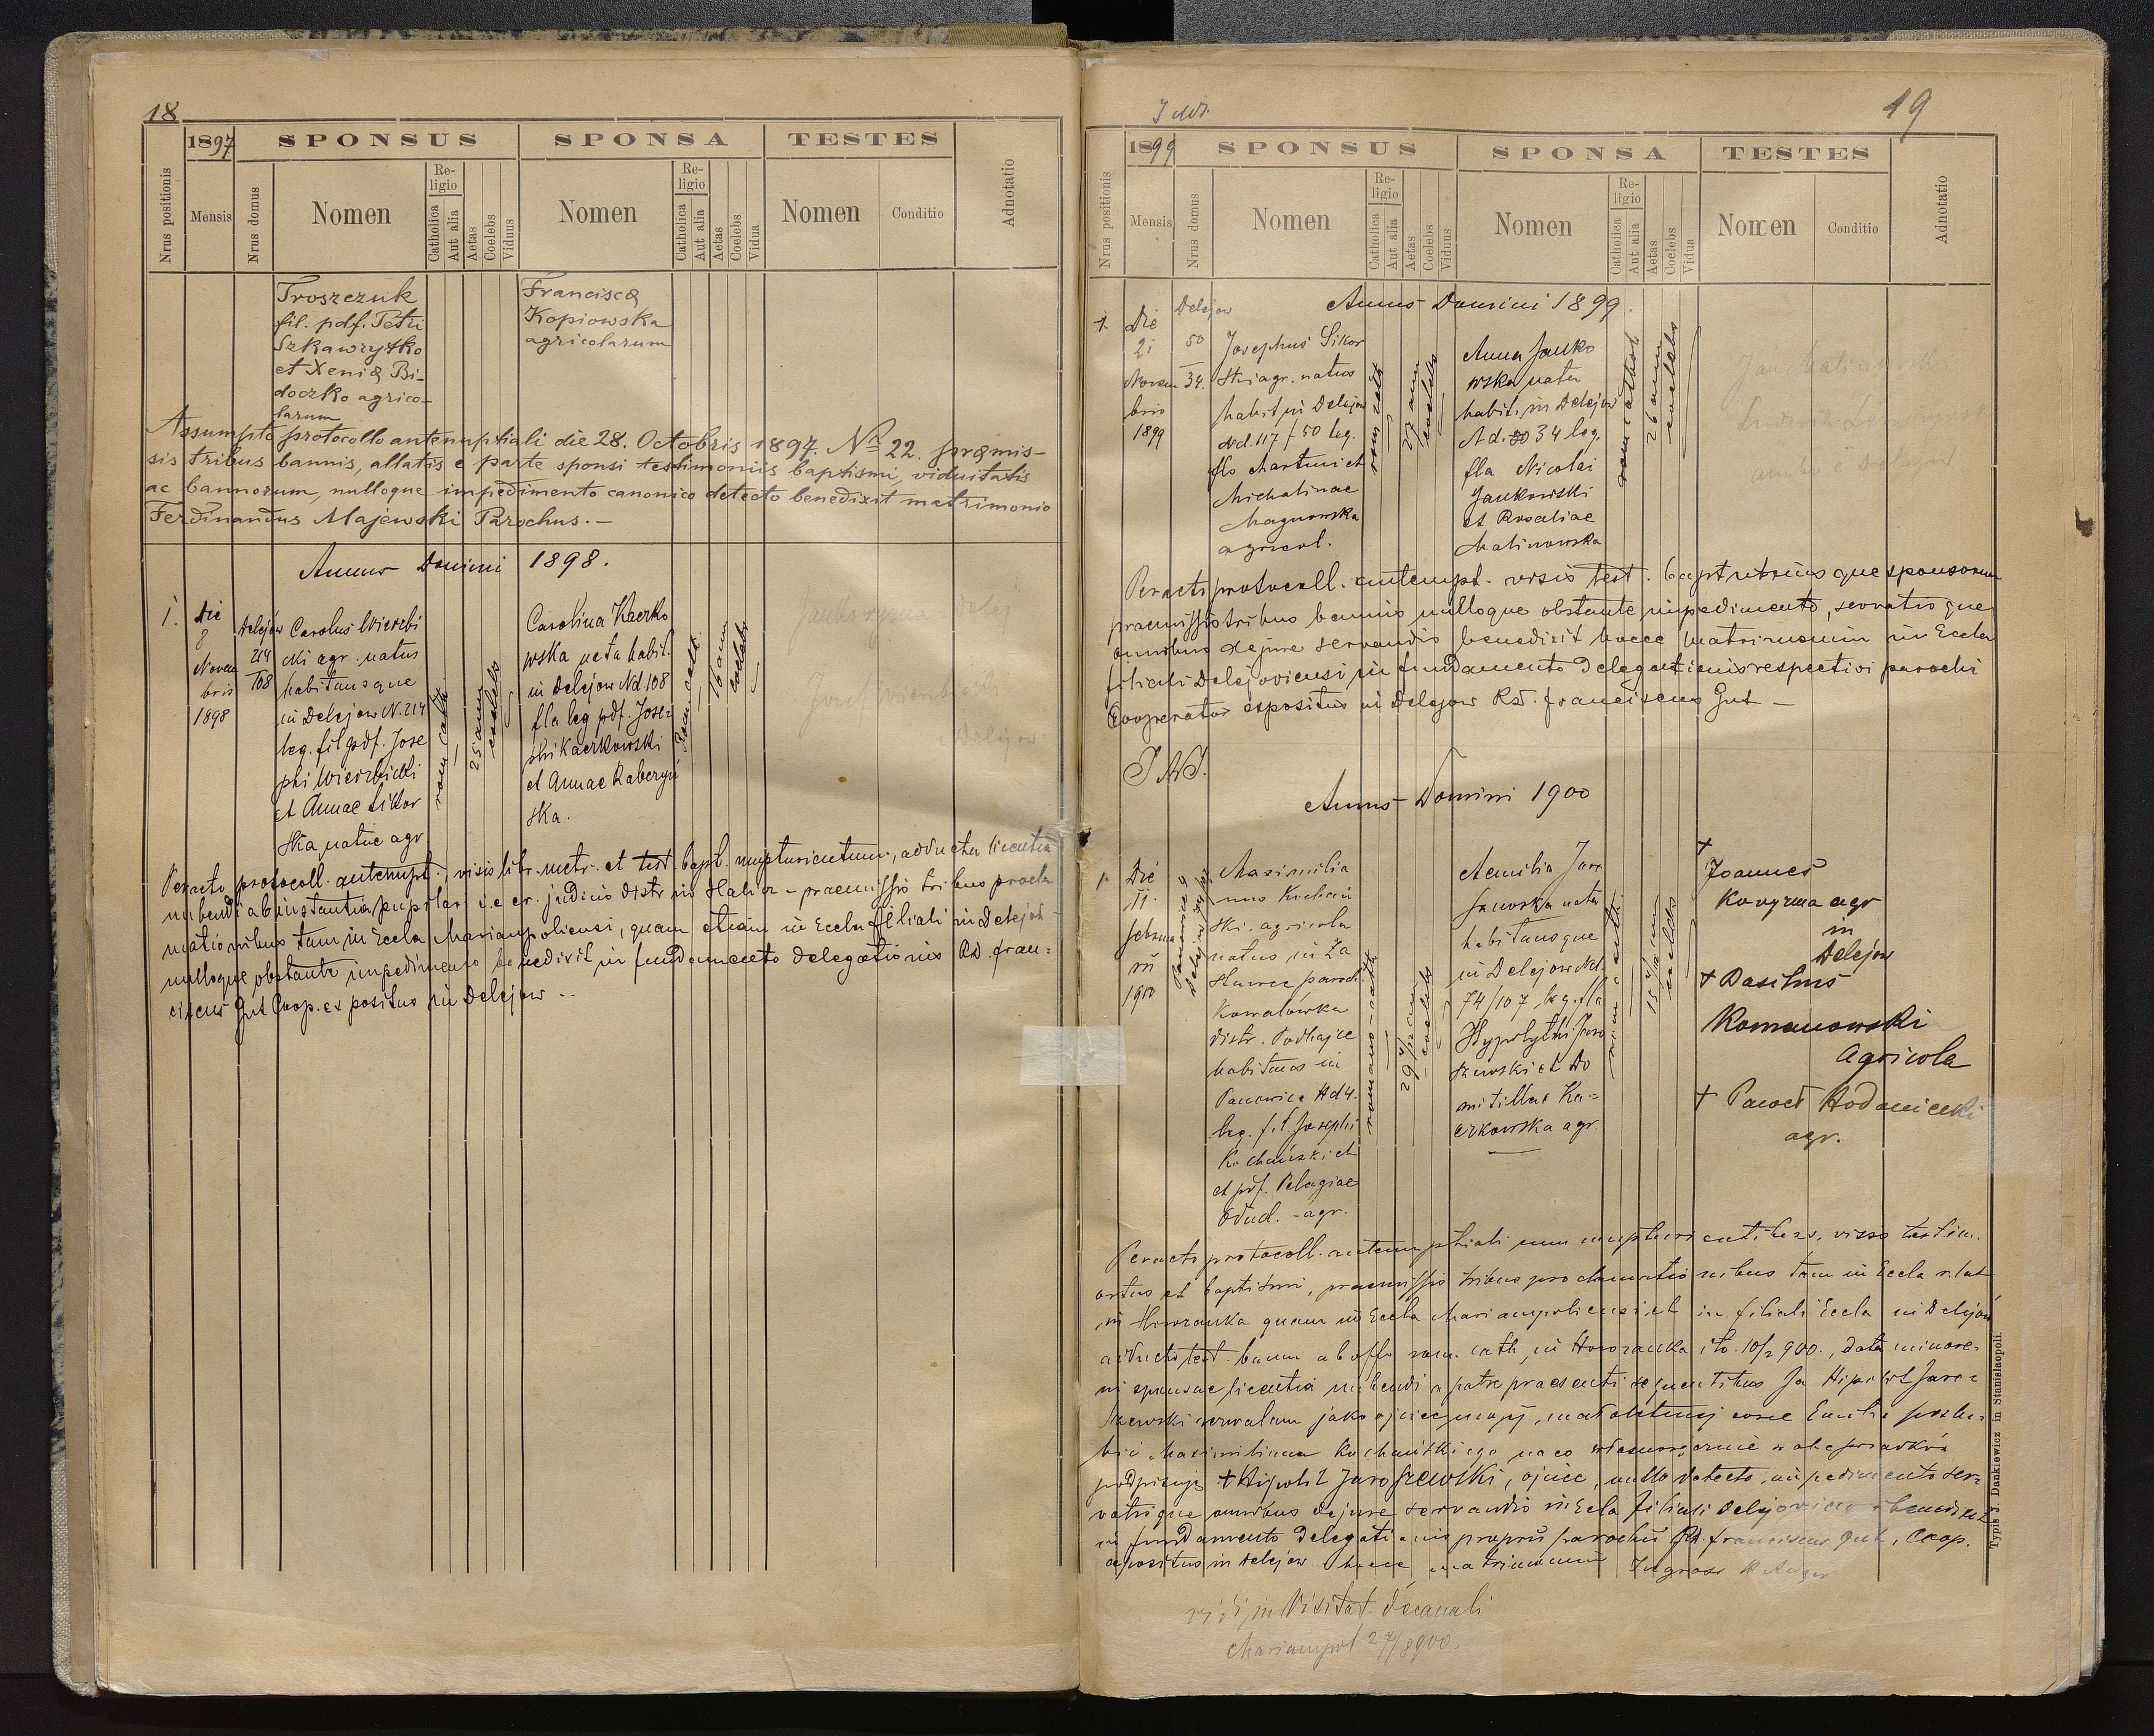 18
1897 SPONSUS SPONSA TESTES
Nrus positionis
Mensis
Nrus domus
Nomen
Religio
Catholica
Aut alia
Aetas
Coelebs
Viduus
Nomen
Religio
Catholica
Aut alia
Aetas
Coelebs
Vidua
Nomen
Conditio
Adnotatio
Troszczuk
fil. pdf. Petri
Szkawrytko
et Xeniae Bi-
doczko agrico-
larum
Francisca
Kopiowska
agricolarum
Assumpto protocollo antenuptiali die 28. Octobris 1897. No 22. praemis-
sis tribus bannis, allatis e parte sponsi testimoniis baptismi, viduitatis
ac bannorum, nulloque impedimento canonico detecto benedixit matrimonio
Ferdinandus Majewski Parochus. —
Annus Domini 1898.
1.
die
8
Novem
bris
1898
Delejów
214
108
Carolus Wierzbi
cki agr. natus
habitansque
in Delejow N. 214
leg. fil pdf. Jose
phi Wierzbicki
et Annae Sikor
ska natue agr
rom. cath.
25 ann
coelebs
Carolina Kaczko
wska nata habit.
in Delejow Nd. 108
fla leg pdf. Jose
phi Kaczkowski
et Annae
ska.
Rom. cath.
16 ann
coelebs
Delejow
Peracto protocoll. antenupt., visis libr. metr. et test. bapt. nupturientum, adducta licentia
nubendi ab instantia pupilari i.e cr. judicio distr in Halicz – praemissis tribus procla
mationibus tam in Eccla Mariampoliensi, quam etiam in Eccla filiali in Delejow –
nulloque obstante impedimento benedixit in fundamento delegationis Rd. Fran=
ciscus Gut Coop. expositus in Delejow ..
19
1899 SPONSUS SPONSA TESTES
Nrus positionis
Mensis
Nrus domus
Nomen
Religio
Catholica
Aut alia
Aetas
Coelebs
Viduus
Nomen
Religio
Catholica
Aut alia
Aetas
Coelebs
Vidua
Nomen
Conditio
Adnotatio
Annus Domini 1899.
1.
Die
21
Novem
bris
1899
Delejow
50
34.
Josephus Sikor
ski agr. natus
habit in Delejow
Nd. 117/50 leg.
fls Martini et
Michalinae
Magnowska
agricol.
rom cath
27 ann
coelebs
Anna Janko
wska nata
habit. in Delejow
Nd. 34 leg.
fla Nicolai
Jankowski
et Rosaliae
Malinowska
rom cathol
26 annor
coelebs
ambo e Delejow
Peracto protocoll. antenupt. visis test. bapt utriusque sponsorum
praemissis tribus bannis nulloque obstante impedimento, servatisque
omnibus de jure servandis benedixit hocce matrimonium in Eccla
filiali Delejoviensi in fundamento delegationis respectivi parochi
Cooperator expositus in Delejow Rd. Franciscus Gut —
Annus Domini 1900
1.
Die
11.
februa
rii
1900
Panowice 4
Maximilia
nus Kochań
ski. agricola
natus in Za
stawce paroch.
Kowalówka
distr. Podhajce
habitans in
Panowice Nd 4.
leg. fil Josephi
Kochański et
et pdf. Pelagiae
Dud. - agr.
romano-cath
coelebs
Aemilia Jaro
szewska nata
habitansque
in Delejow Nd.
74/107 leg. fla
Hypolyti Jaro
szewski et Do
mitillae Ka=
czkowska agr.
coelebs
+
Joannes
Kowyrma agr
in
Delejow
+ Basilius
Romanowski
agricola
+ Paweł Hodaniecki
agr.
Peracto protocoll. antenuptiali cum nupturientibus, visis testim.
ortus et baptismi, praemissis tribus proclamationibus tam in Eccla r. lat
in Horozanka quam in Eccla Mariampoliensi et in filiali Eccla in Delejow
adducto test. bann ab offo rom. cath. in Horozanka dto. 10/2 900., data minore=
ni sponsae licentia nubendi a patre praesenti sequentibus Ja Hipolit Jaro=
szewski zezwalam jako ojciec mojej małoletniej córce Emilii poślu=
bić Maximiliana Kochańskiego na co własnoręcznie w obec świadków
podpisuję + Hipolit Jaroszewski, ojciec, nullo detecto impedimento ser=
vatisque omnibus de jure servandis in Eccla filiali Delejoviensi benedixit
in fundamento delegationis proprii parochi Rd. Franciscus Gut, Coop.
expositus in Delejow hocce matrimonium
in Visitat. decanali
Mariampol 27/8 900.
Typis J. Dankiewicz in Stanislaopoli.